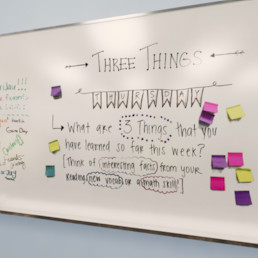 THREE THINGS
THURSDAY
What are 3 Things that you
have learned so far this week?
[Think of interesting facts from your
Reading, new vocab or a math skill!]
Game Day